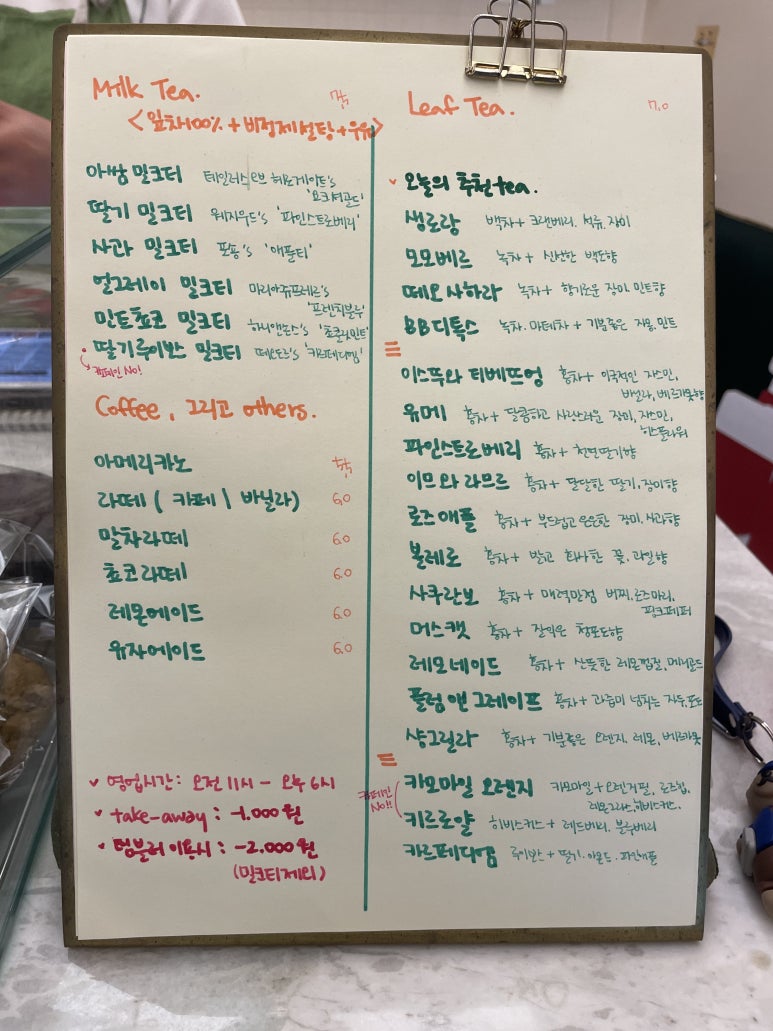 Milk Tea.
<잎차100% + 비정제설탕+우유>
아쌈 밀크티 테일러스 오브 헤로게이트's
'요크셔골드'
딸기 밀크티 웨지우드's '파인스트로베리'
사과 밀크티 포숑's '애플티'
얼그레이 밀크티 마리아쥬프레르's
'프렌치블루'
민트쵸코 밀크티 하니앤손스's '초콜릿민트'
딸기루이보스 밀크티 떼오도르's '카르페디엠'
카페인 No!
Coffee, 그리고 others.
아메리카노
라떼 ( 카페 | 바닐라) 6.0
말차라떼 6.0
쵸코라떼 6.0
레몬에이드 6.0
유자에이드 6.0
영업시간: 오전 11시 - 오후 6시
take-away : -1.000원
텀블러 이용시 : -2.000원
(밀크티제외)
Leaf Tea. 7.0
오늘의 추천tea.
생로랑 백차+ 크랜베리. 석류. 장미
모모베르 녹차+ 신선한 백도향
떼오 사하라 녹차+ 향기로운 장미. 민트향
BB디톡스 녹차. 마테차 + 기분좋은 자몽. 민트
이스뚜와 티베뜨엉 홍차+ 이국적인 자스민,
바닐라, 베르가못향
유메 홍차+ 달콤하고 사랑스러운 장미, 자스민,
파인스트로베리 홍차+ 천연딸기향
이므와 라므르 홍차+ 달달한 딸기. 장미향
로즈애플 홍차+ 부드럽고 은은한 장미. 사과향
볼레로 홍차+ 밝고 화사한 꽃. 과일향
사쿠란보 홍차+ 매력만점 버찌. 로즈마리.
핑크페퍼
머스캣 홍차+ 잘익은 청포도향
레모네이드 홍차+ 산뜻한 레몬껍질, 메리골드
플럼앤그레이프 홍차+ 과즙미 넘치는 자두, 포도
샹그릴라 홍차+ 기분좋은 오렌지. 레몬, 베르가못
카페인 No!!
카모마일 오렌지 카모마일+오렌지필, 로즈힙,
레몬그라스, 히비스커스.
키르로얄 히비스커스 + 레드베리. 블루베리
카르페디엠 루이보스 + 딸기. 아몬드. 파인애플